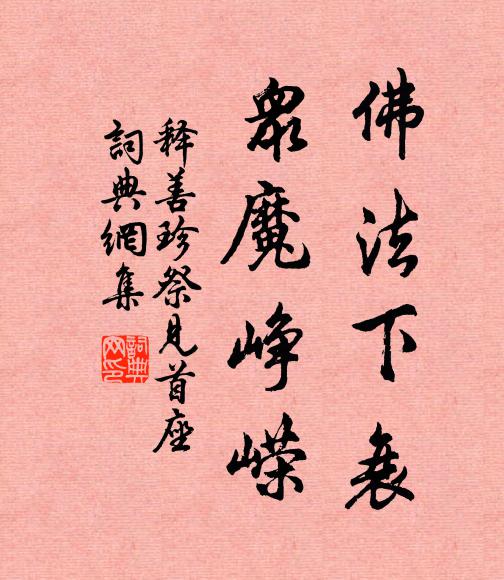 佛法下衰
眾魔峥嶸
释善珍祭見首座
詞典網集
詞典
网印